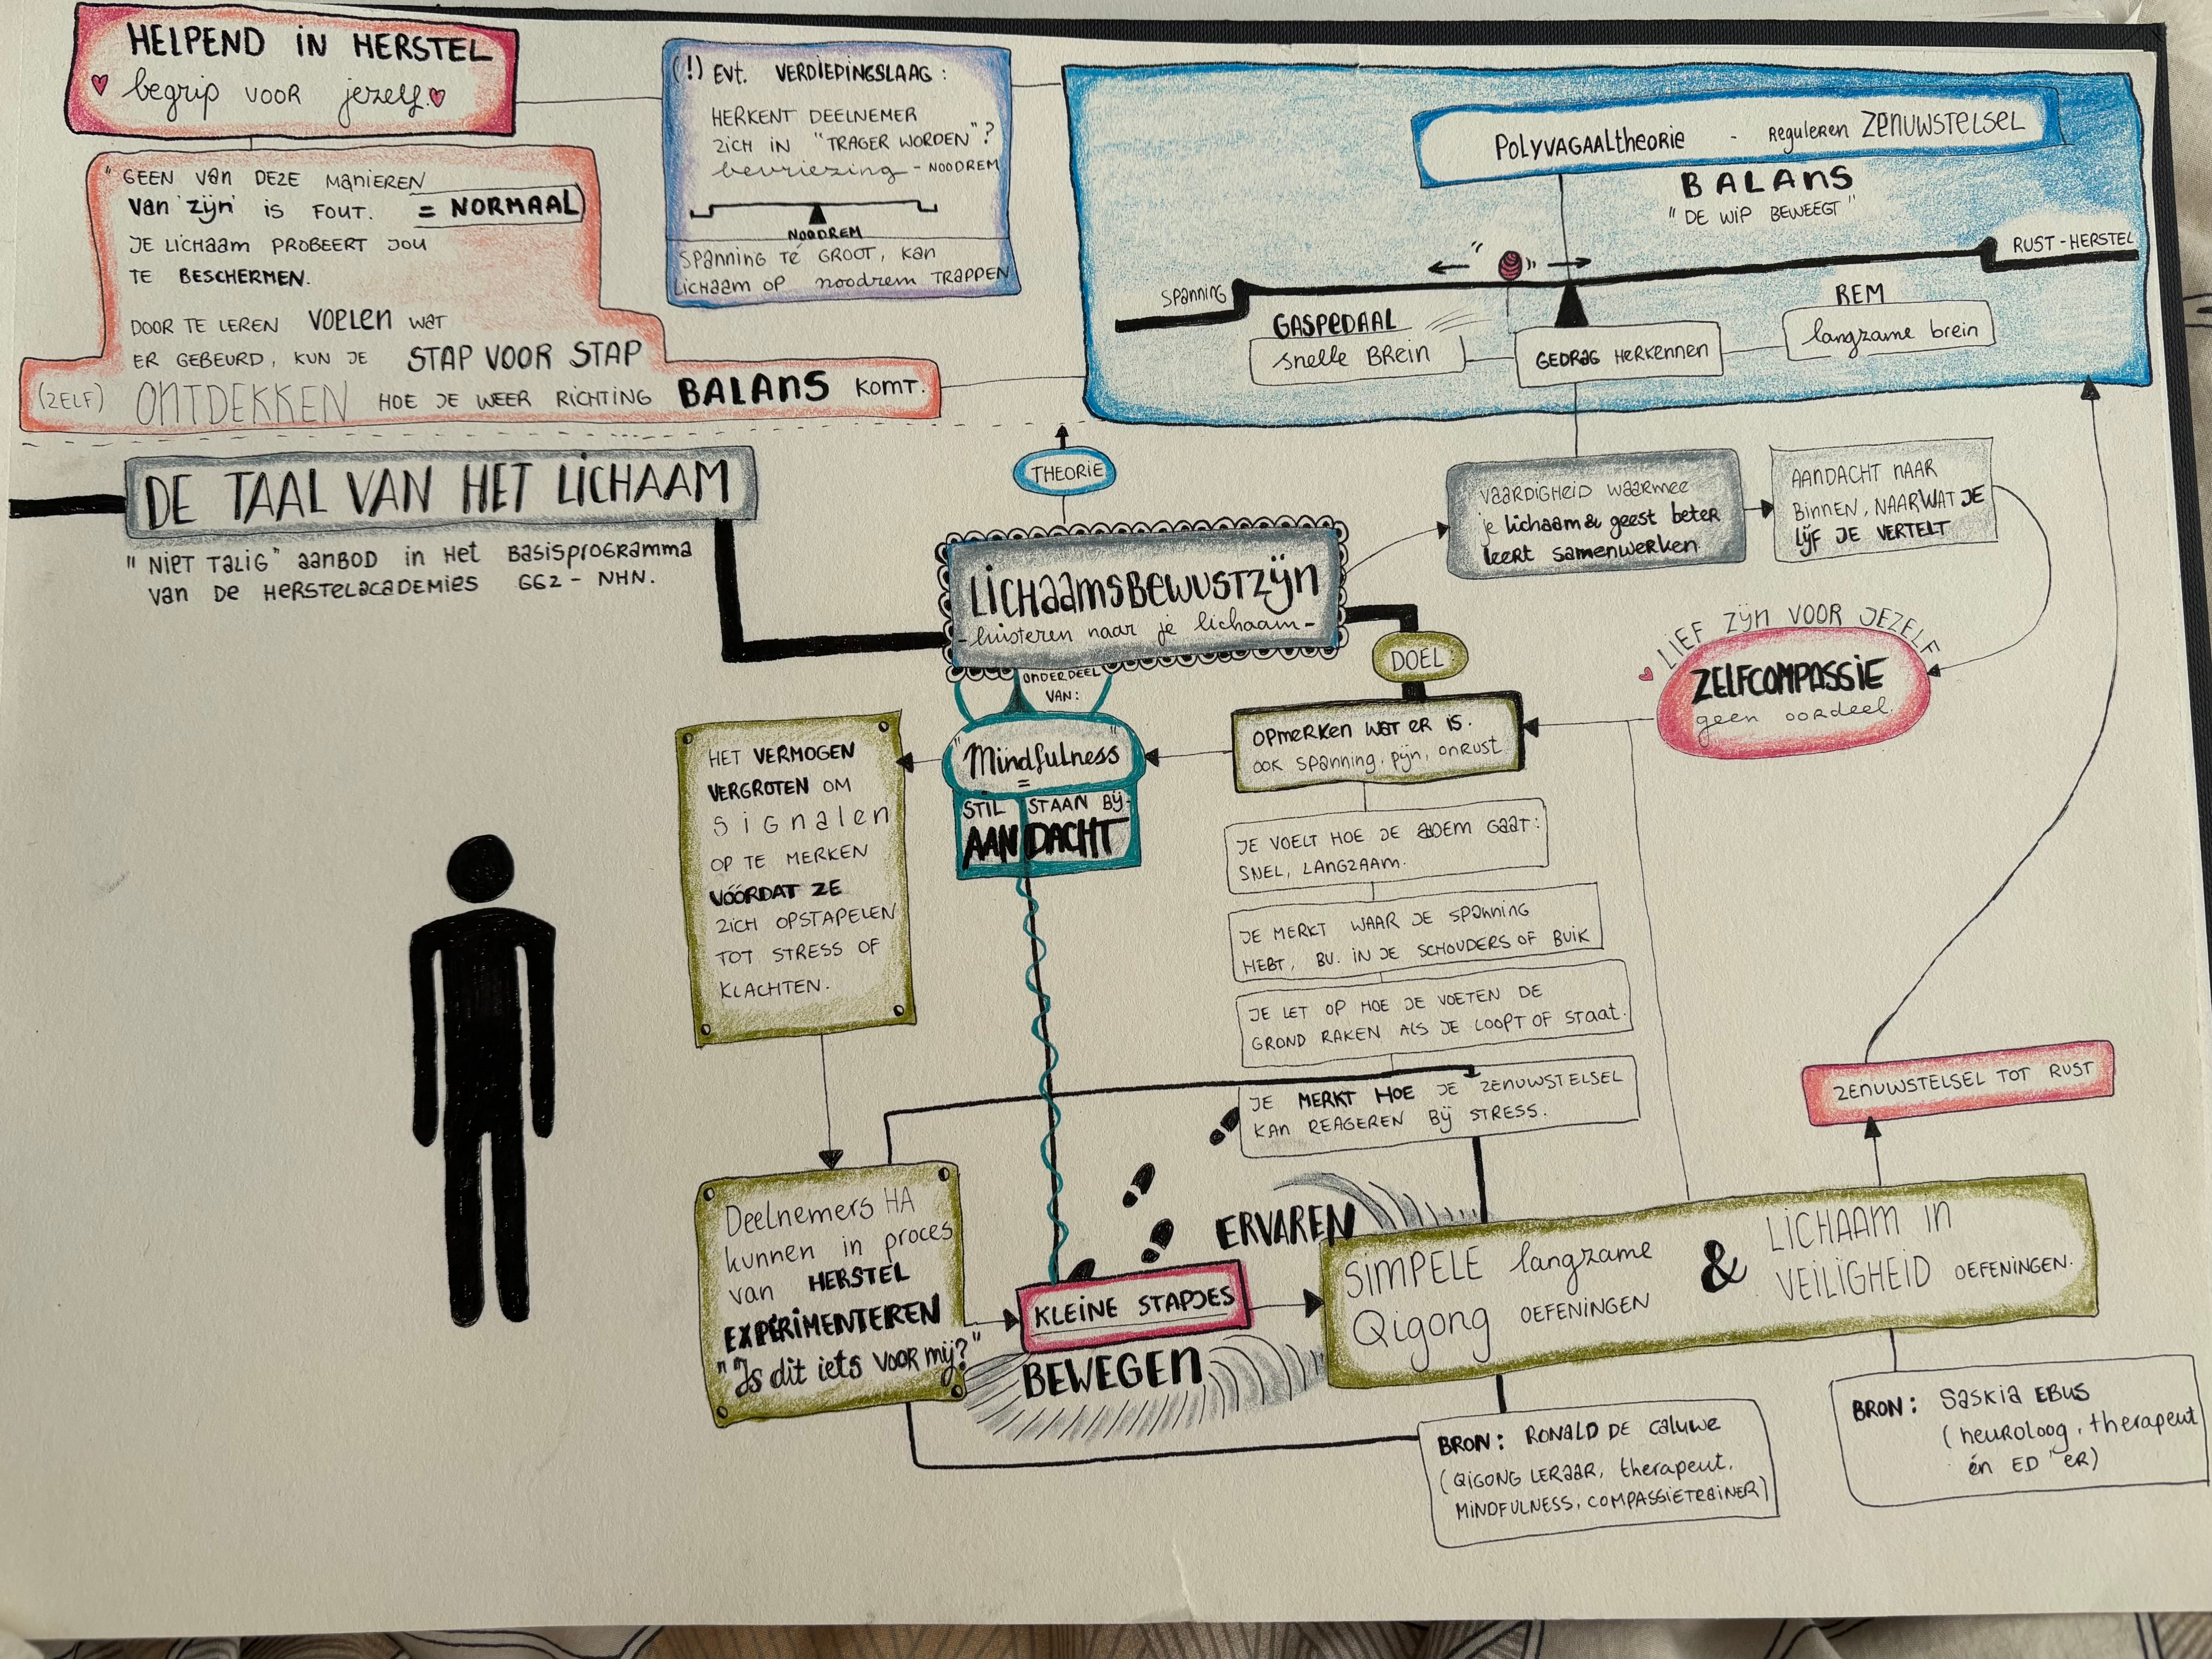 HELPEND IN HERSTEL
begrip voor jezelf.
"GEEN van DEZE MANIEREN
van 'zijn' is FOUT. = NORMAAL
JE LICHAAM PROBEERT JOU
TE BESCHERMEN.
DOOR TE LEREN VOELEN WAT
ER GEBEURD, KUN JE STAP VOOR STAP
(ZELF) ONTDEKKEN HOE JE WEER RICHTING BALANS KOMT.
(!) EVT. VERDIEPINGSLAAG:
HERKENT DEELNEMER
ZICH IN "TRAGER WORDEN"?
bevriezing - NOODREM
NOODREM
SPANNING TÉ GROOT, KAN
LICHAAM OP noodrem TRAPPEN
POLYVAGAALTHEORIE - REGULEREN ZENUWSTELSEL
BALANS
"DE WIP BEWEEGT"
RUST-HERSTEL
SPANNING
GASPEDAAL
snelle BREIN
GEDRAG HERKENNEN
REM
langzame brein
DE TAAL VAN HET LICHAAM
"NIET TALIG" AANBOD IN HET BASISPROGRAMMA
VAN DE HERSTELACADEMIES GGZ - NHN.
THEORIE
LICHAAMSBEWUSTZIJN
- luisteren naar je lichaam -
VAARDIGHEID WAARMEE
je lichaam & geest beter
leert samenwerken
AANDACHT NAAR
BINNEN, NAAR WAT JE
LIJF JE VERTELT
LIEF ZIJN VOOR JEZELF
ZELFCOMPASSIE
geen oordeel.
DOEL
OPMERKEN WAT ER IS.
OOK SPANNING, PIJN, ONRUST
ONDERDEEL
VAN:
"Mindfulness"
=
STIL STAAN BIJ
AANDACHT
HET VERMOGEN
VERGROTEN OM
SIGNALEN
OP TE MERKEN
VÓÓRDAT ZE
ZICH OPSTAPELEN
TOT STRESS OF
KLACHTEN.
JE VOELT HOE JE ADEM GAAT:
SNEL, LANGZAAM.
JE MERKT WAAR JE SPANNING
HEBT, BV. IN JE SCHOUDERS OF BUIK
JE LET OP HOE JE VOETEN DE
GROND RAKEN ALS JE LOOPT OF STAAT.
JE MERKT HOE JE ZENUWSTELSEL
KAN REAGEREN BIJ STRESS.
ZENUWSTELSEL TOT RUST
Deelnemers HA
kunnen in proces
van HERSTEL
EXPERIMENTEREN
"Is dit iets voor mij?"
ERVAREN
KLEINE STAPJES
BEWEGEN
SIMPELE langzame
Qigong OEFENINGEN
&
LICHAAM IN
VEILIGHEID OEFENINGEN.
BRON: RONALD DE CALUWE
(QIGONG LERAAR, therapeut,
MINDFULNESS, COMPASSIETRAINER)
BRON: SASKIA EBUS
(neuroloog, therapeut
én ED'ER)